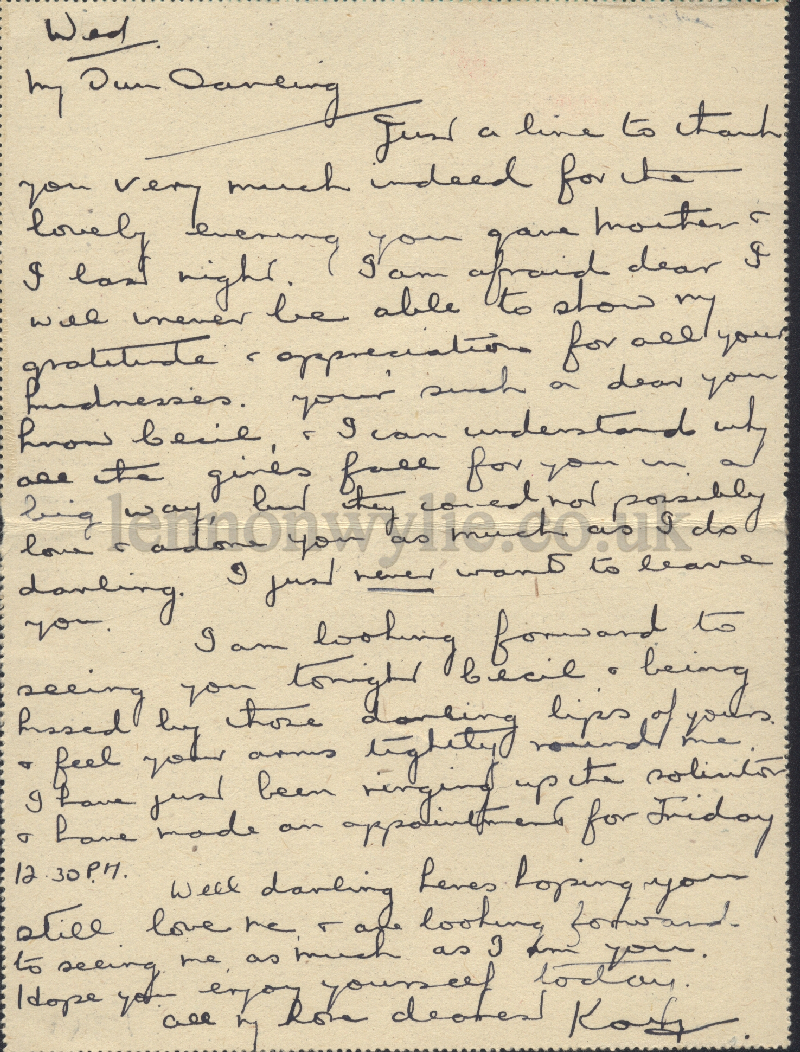 Wed
My Own Darling
Just a line to thank
you very much indeed for the
lovely evening you gave Mother &
I last night. I am afraid dear I
will never be able to show my
gratitude & appreciation for all your
kindnesses. your such a dear you
know Cecil, & I can understand why
all the girls fall for you in a
big way, but they could not possibly
love & adore you as much as I do
darling. I just never want to leave
you.
I am looking forward to
seeing you tonight Cecil & being
kissed by those darling lips of yours.
& feel your arms tightly round me.
I have just been ringing up the solicitor
& have made an appointment for Friday
12.30 P.M.
Well darling heres hoping you
still love me, & are looking forward
to seeing me as much as I am you.
Hope you enjoy yourself today.
All my love dearest
lennonwylie.co.uk